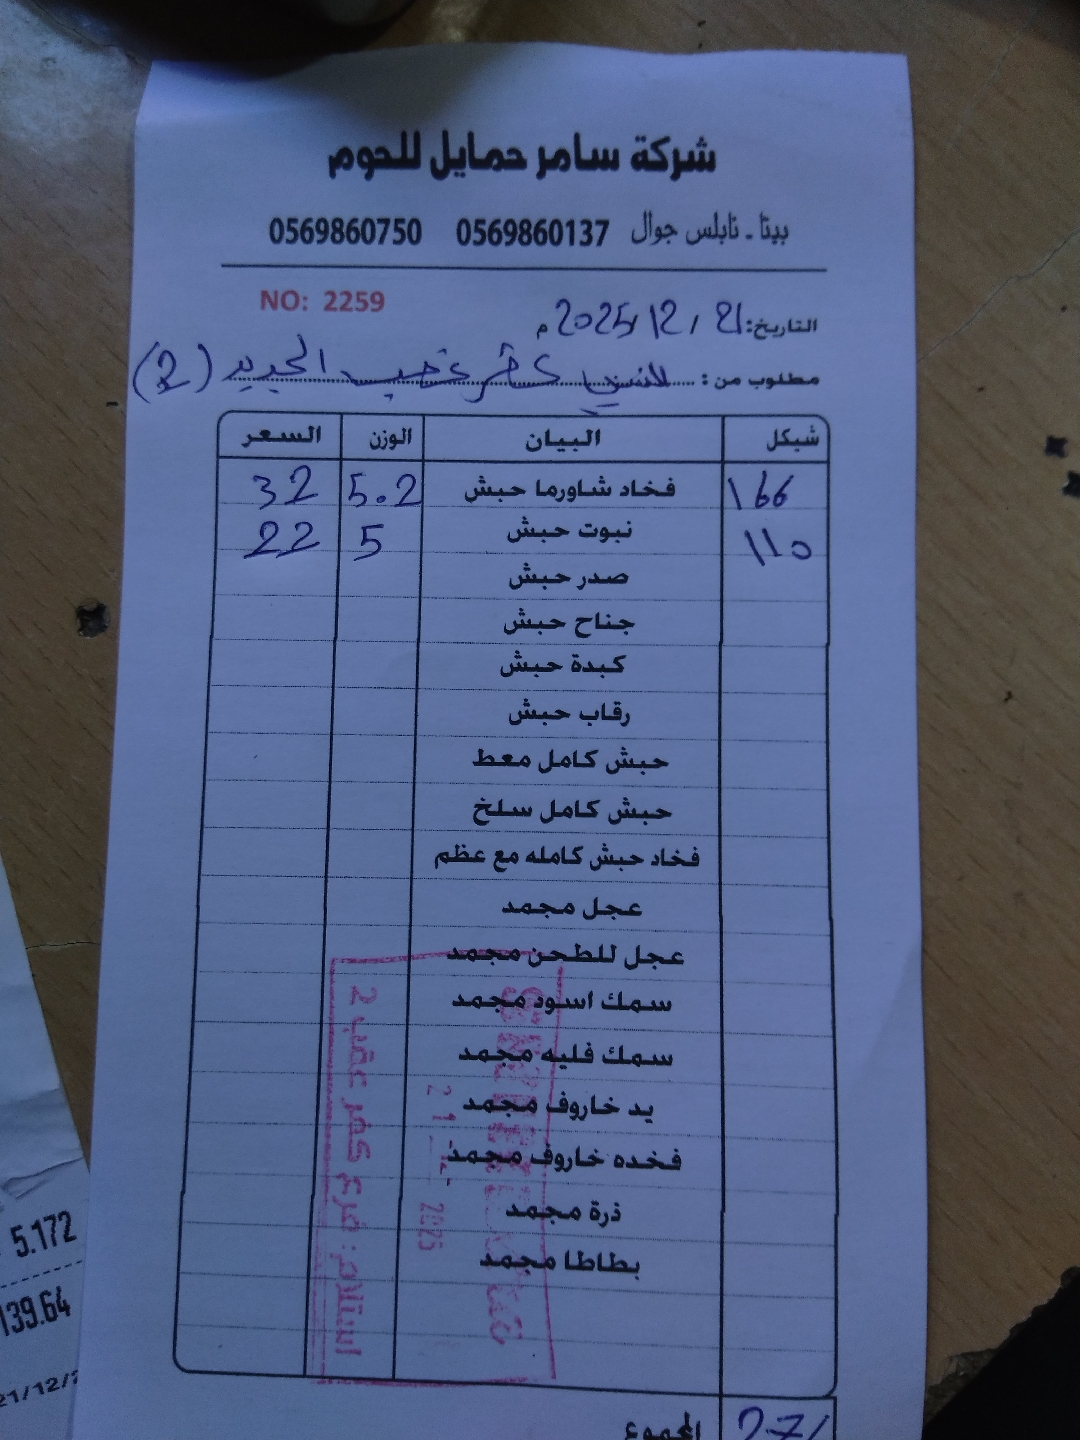 شركة سامر حمايل للحوم
بيتا - نابلس جوال 0569860137 0569860750
NO: 2259
التاريخ: 21 / 12 / 2025 م
مطلوب من: كفر عقب الجديد (2)
شيكل البيان الوزن السعر
166 فخاد شاورما حبش 5.2 32
110 نبوت حبش 5 22
صدر حبش
جناح حبش
كبدة حبش
رقاب حبش
حبش كامل معط
حبش كامل سلخ
فخاد حبش كامله مع عظم
عجل مجمد
عجل للطحن مجمد
سمك اسود مجمد
سمك فليه مجمد
يد خاروف مجمد
فخده خاروف مجمد
ذرة مجمد
بطاطا مجمد
المجموع
استلام: فرع كفر عقب 2
21 2025
5.172
139.64
21/12/2